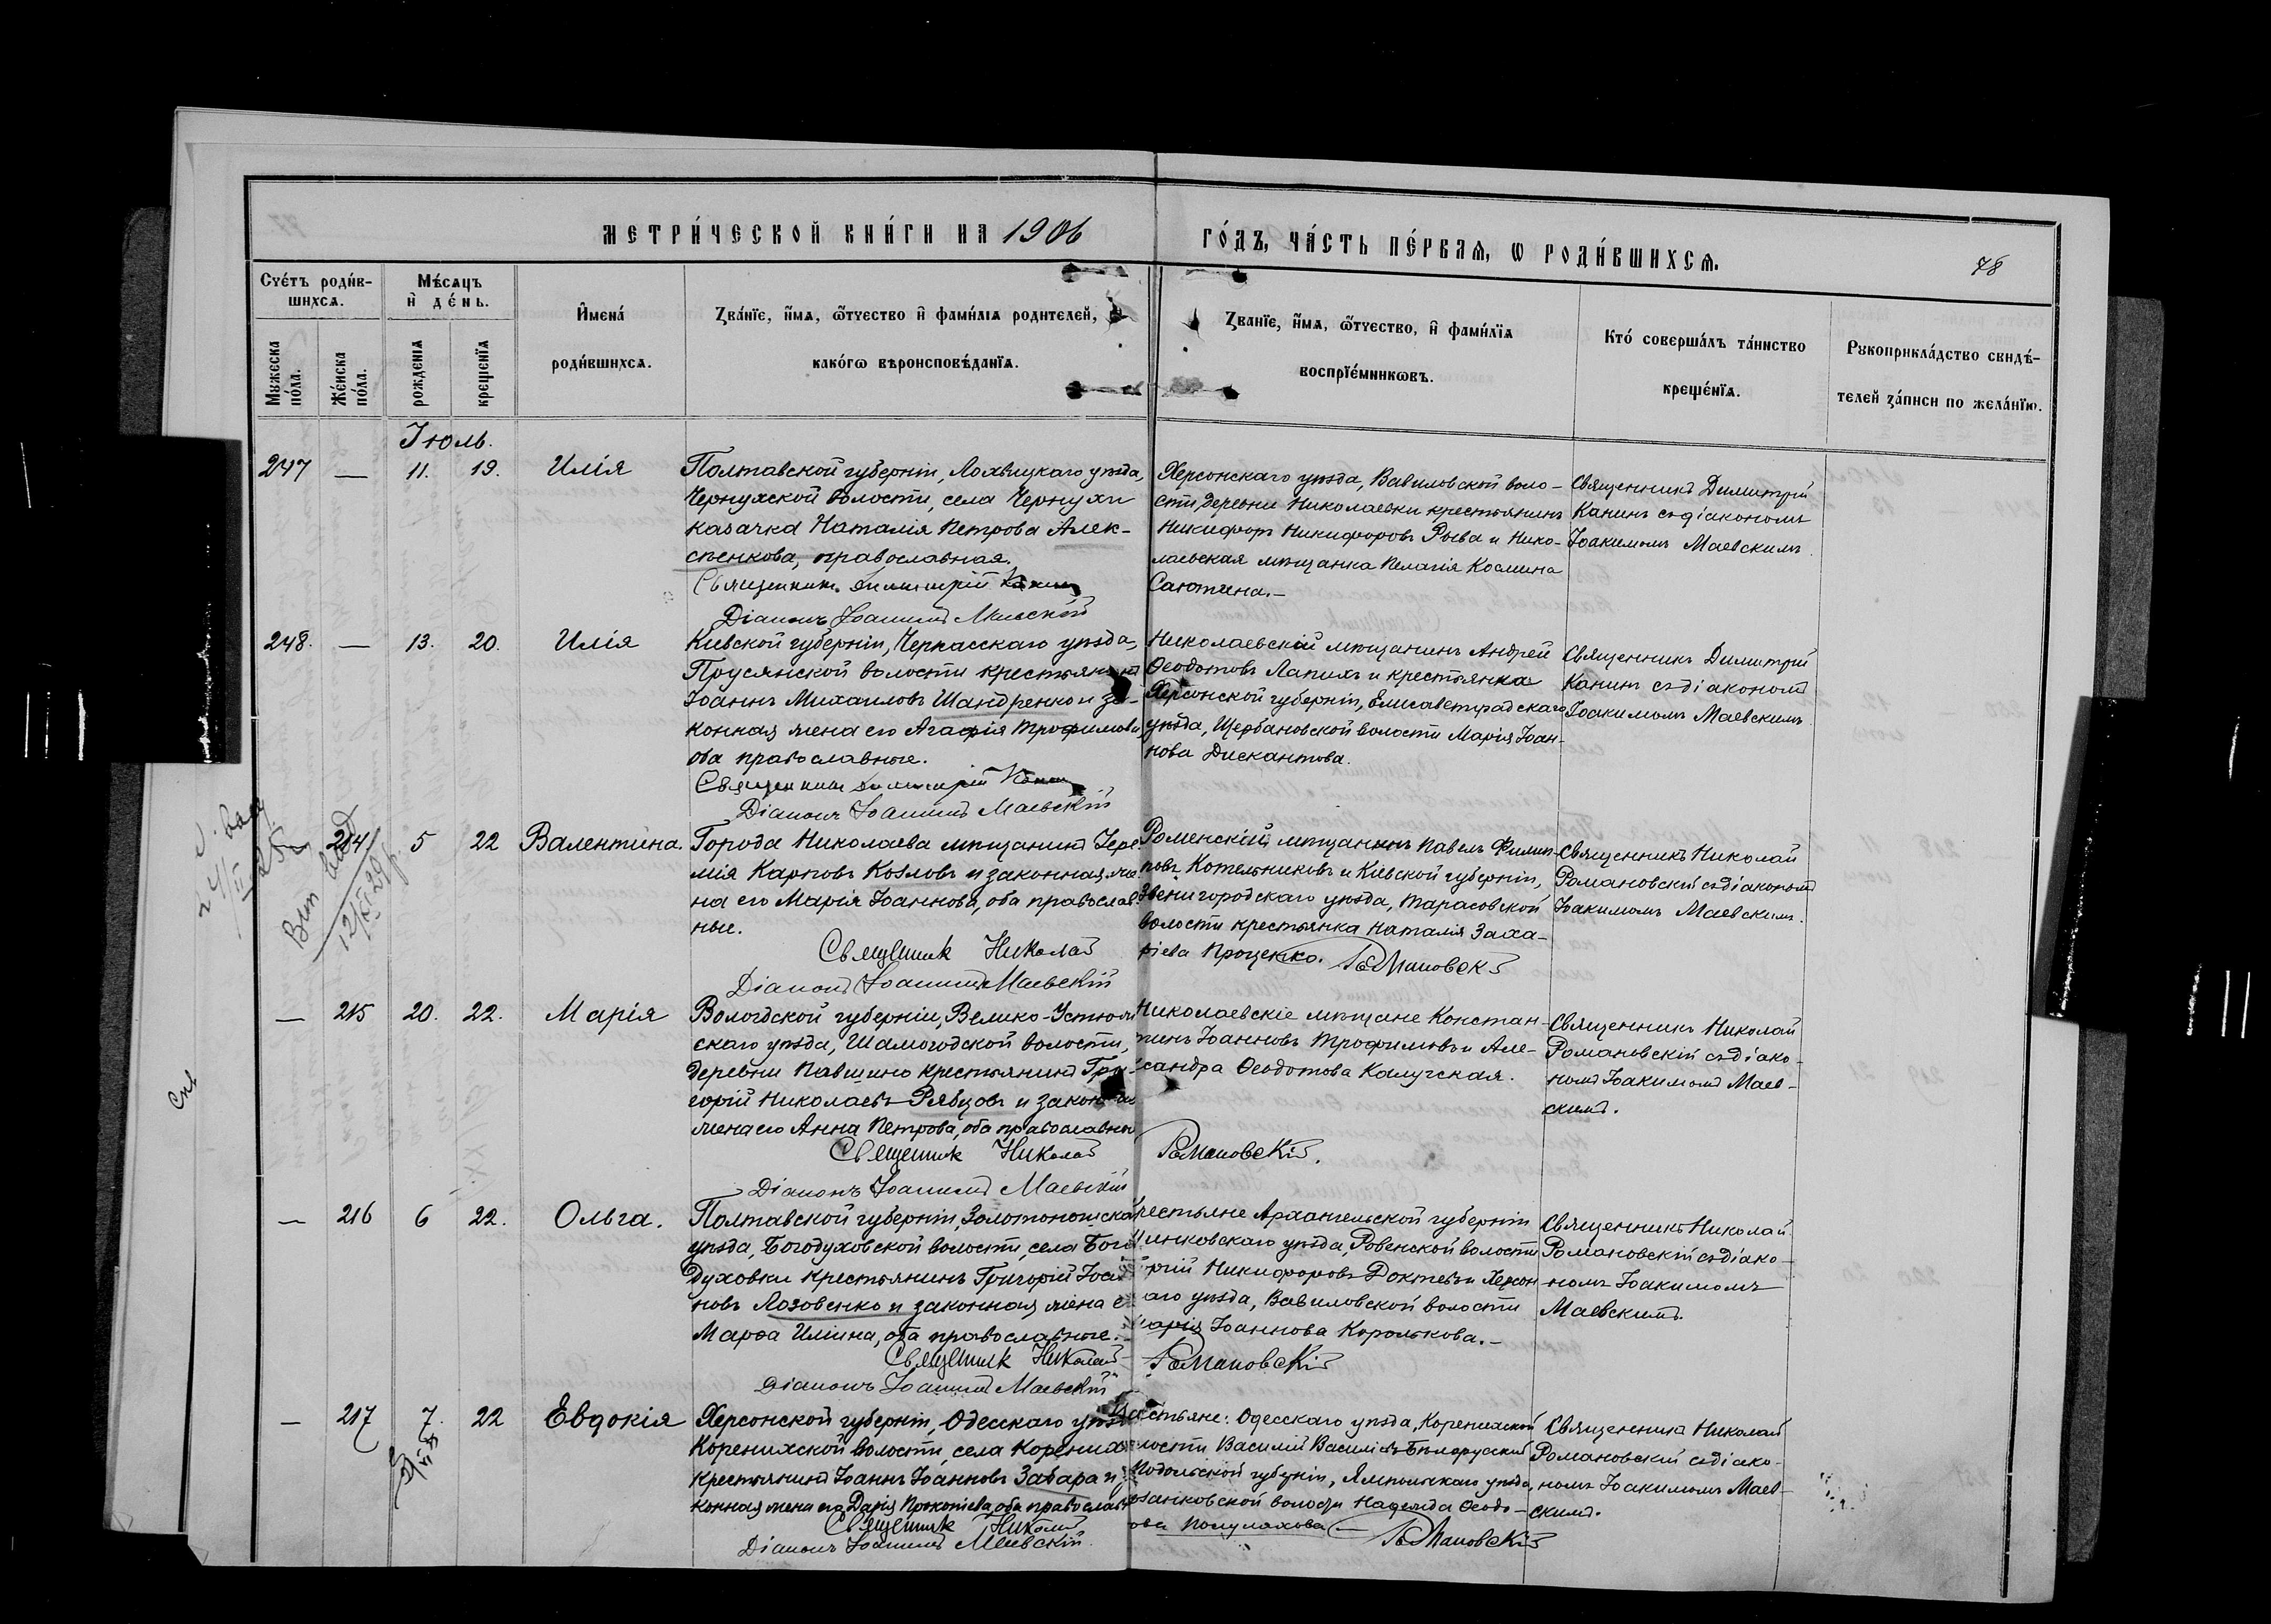 МЕТРИ́ЧЕСКОЙ КНИ́ГИ НА 1906
ГО́ДЪ, ЧА́СТЬ ПЕ́РВАЯ, Ѡ РОДИ́ВШИХСѦ.
78
Сче́тъ роди́в-
шихсѧ.
Мѣ́сѧцъ
и҆ де́нь.
Мужеска
по́ла.
Же́нска
по́ла.
рожденїѧ
крещенїѧ
И҆мена́
роди́вшихсѧ.
Зва́нїе, и҆́мѧ, ѻ҆́тчество и҆ фами́лїѧ родителей, и҆
како́гѡ вѣроисповѣ́данїѧ.
Зва́нїе, и҆́мѧ, ѻ҆́тчество, и҆ фами́лїѧ
воспрїе́мникѡвъ.
Кто́ соверша́лъ та́инство
креще́нїѧ.
Рукоприкла́дство свидѣ́-
телей за́писи по жела́нїю.
Іюль.
247 — 11. 19. Илія
Полтавской губерніи, Лохвицкаго уѣзда,
Чернухской волости, села Чернухи
казачка Наталія Петрова Алек-
сѣенкова, православная.
Священникъ Димитрій Канинъ
Діаконъ Іоакимъ Маевскій
Херсонскаго уѣзда, Вавиловской воло-
сти, деревни Николаевки крестьянинъ
Никифоръ Никифоровъ Рыва и Нико-
лаевская мѣщанка Пелагія Космина
Саютина.—
Священникъ Димитрій
Канинъ съ діакономъ
Іоакимомъ Маевскимъ.
248. — 13. 20. Илія
Кіевской губерніи, Черкасскаго уѣзда,
Прусянской волости крестьянинъ
Іоаннъ Михаиловъ Шандренко и за-
конная жена его Агафія Трофимова
оба православные.
Священникъ Димитрій Канинъ
Діаконъ Іоакимъ Маевскій
Николаевскій мѣщанинъ Андрей
Ѳеодотовъ Лапихъ и крестьянка
Херсонской губерніи, Елисаветградскаго
уѣзда, Щербановской волости Марія Іоан-
нова Дискантова.
Священникъ Димитрій
Канинъ съ діакономъ
Іоакимомъ Маевскимъ
214 5 22 Валентина.
Города Николаева мѣщанинъ Іере
мія Карповъ Козловъ и законная же
на его Марія Іоаннова, оба православ
ные.
Священникъ Николай
Діаконъ Іоакимъ Маевскій
Роменскій мѣщанинъ Павелъ Филип-
повъ Котельниковъ и Кіевской губерніи,
Звенигородскаго уѣзда, Тарасовской
волости крестьянка Наталія Заха-
ріева Проценко. Романовскій
Священникъ Николай
Романовскій съ діакономъ
Іоакимомъ Маевскимъ.
— 215 20. 22. Марія
Вологодской губерніи, Велико-Устюж
скаго уѣзда, Шамогодской волости,
деревни Павшино крестьянинъ Гри-
горій Николаевъ Рябцовъ и законная
жена его Анна Петрова, оба православные
Священникъ Николай
Діаконъ Іоакимъ Маевскій
Николаевскіе мѣщане Констан-
тинъ Іоанновъ Трофимовъ и Але-
ксандра Ѳеодотова Калужская.
Романовскій.
Священникъ Николай
Романовскій съ діако-
номъ Іоакимомъ Маев-
скимъ.
— 216 6 22. Ольга.
Полтавской губерніи, Золотоношска
уѣзда, Богодуховской волости, села Бого
духовки крестьянинъ Григорій Іоан
новъ Лозовенко и законная жена е
Марѳа Иліина, оба православные.
Священникъ Николай
Діаконъ Іоакимъ Маевскій
рестьяне Архангельской губерніи
инковскаго уѣзда, Ровенской волости
рій Никифоровъ Доктевъ и Херсон
аго уѣзда, Вавиловской волости
арія Іоаннова Королькова.—
Романовскій
Священникъ Николай
Романовскій съ діако-
номъ Іоакимомъ
Маевскимъ.
— 217 7. 22 Евдокія
Херсонской губерніи, Одесскаго уѣзда
Коренихской волости, села Корениха
крестьянинъ Іоаннъ Іоанновъ Забара и
конная жена его Дарія Прокопіева, оба православ
Священникъ Николай
Діаконъ Іоакимъ Маевскій.
стьяне: Одесскаго уѣзда, Коренихской
лости Василій Василіевъ Бѣлорусскій
Подольской губерніи, Ямпольскаго уѣзда,
занковской волости Надежда Ѳеодо-
ова Полулахова — Романовскій
Священникъ Николай
Романовскій съ діако-
номъ Іоакимомъ Маев-
скимъ.